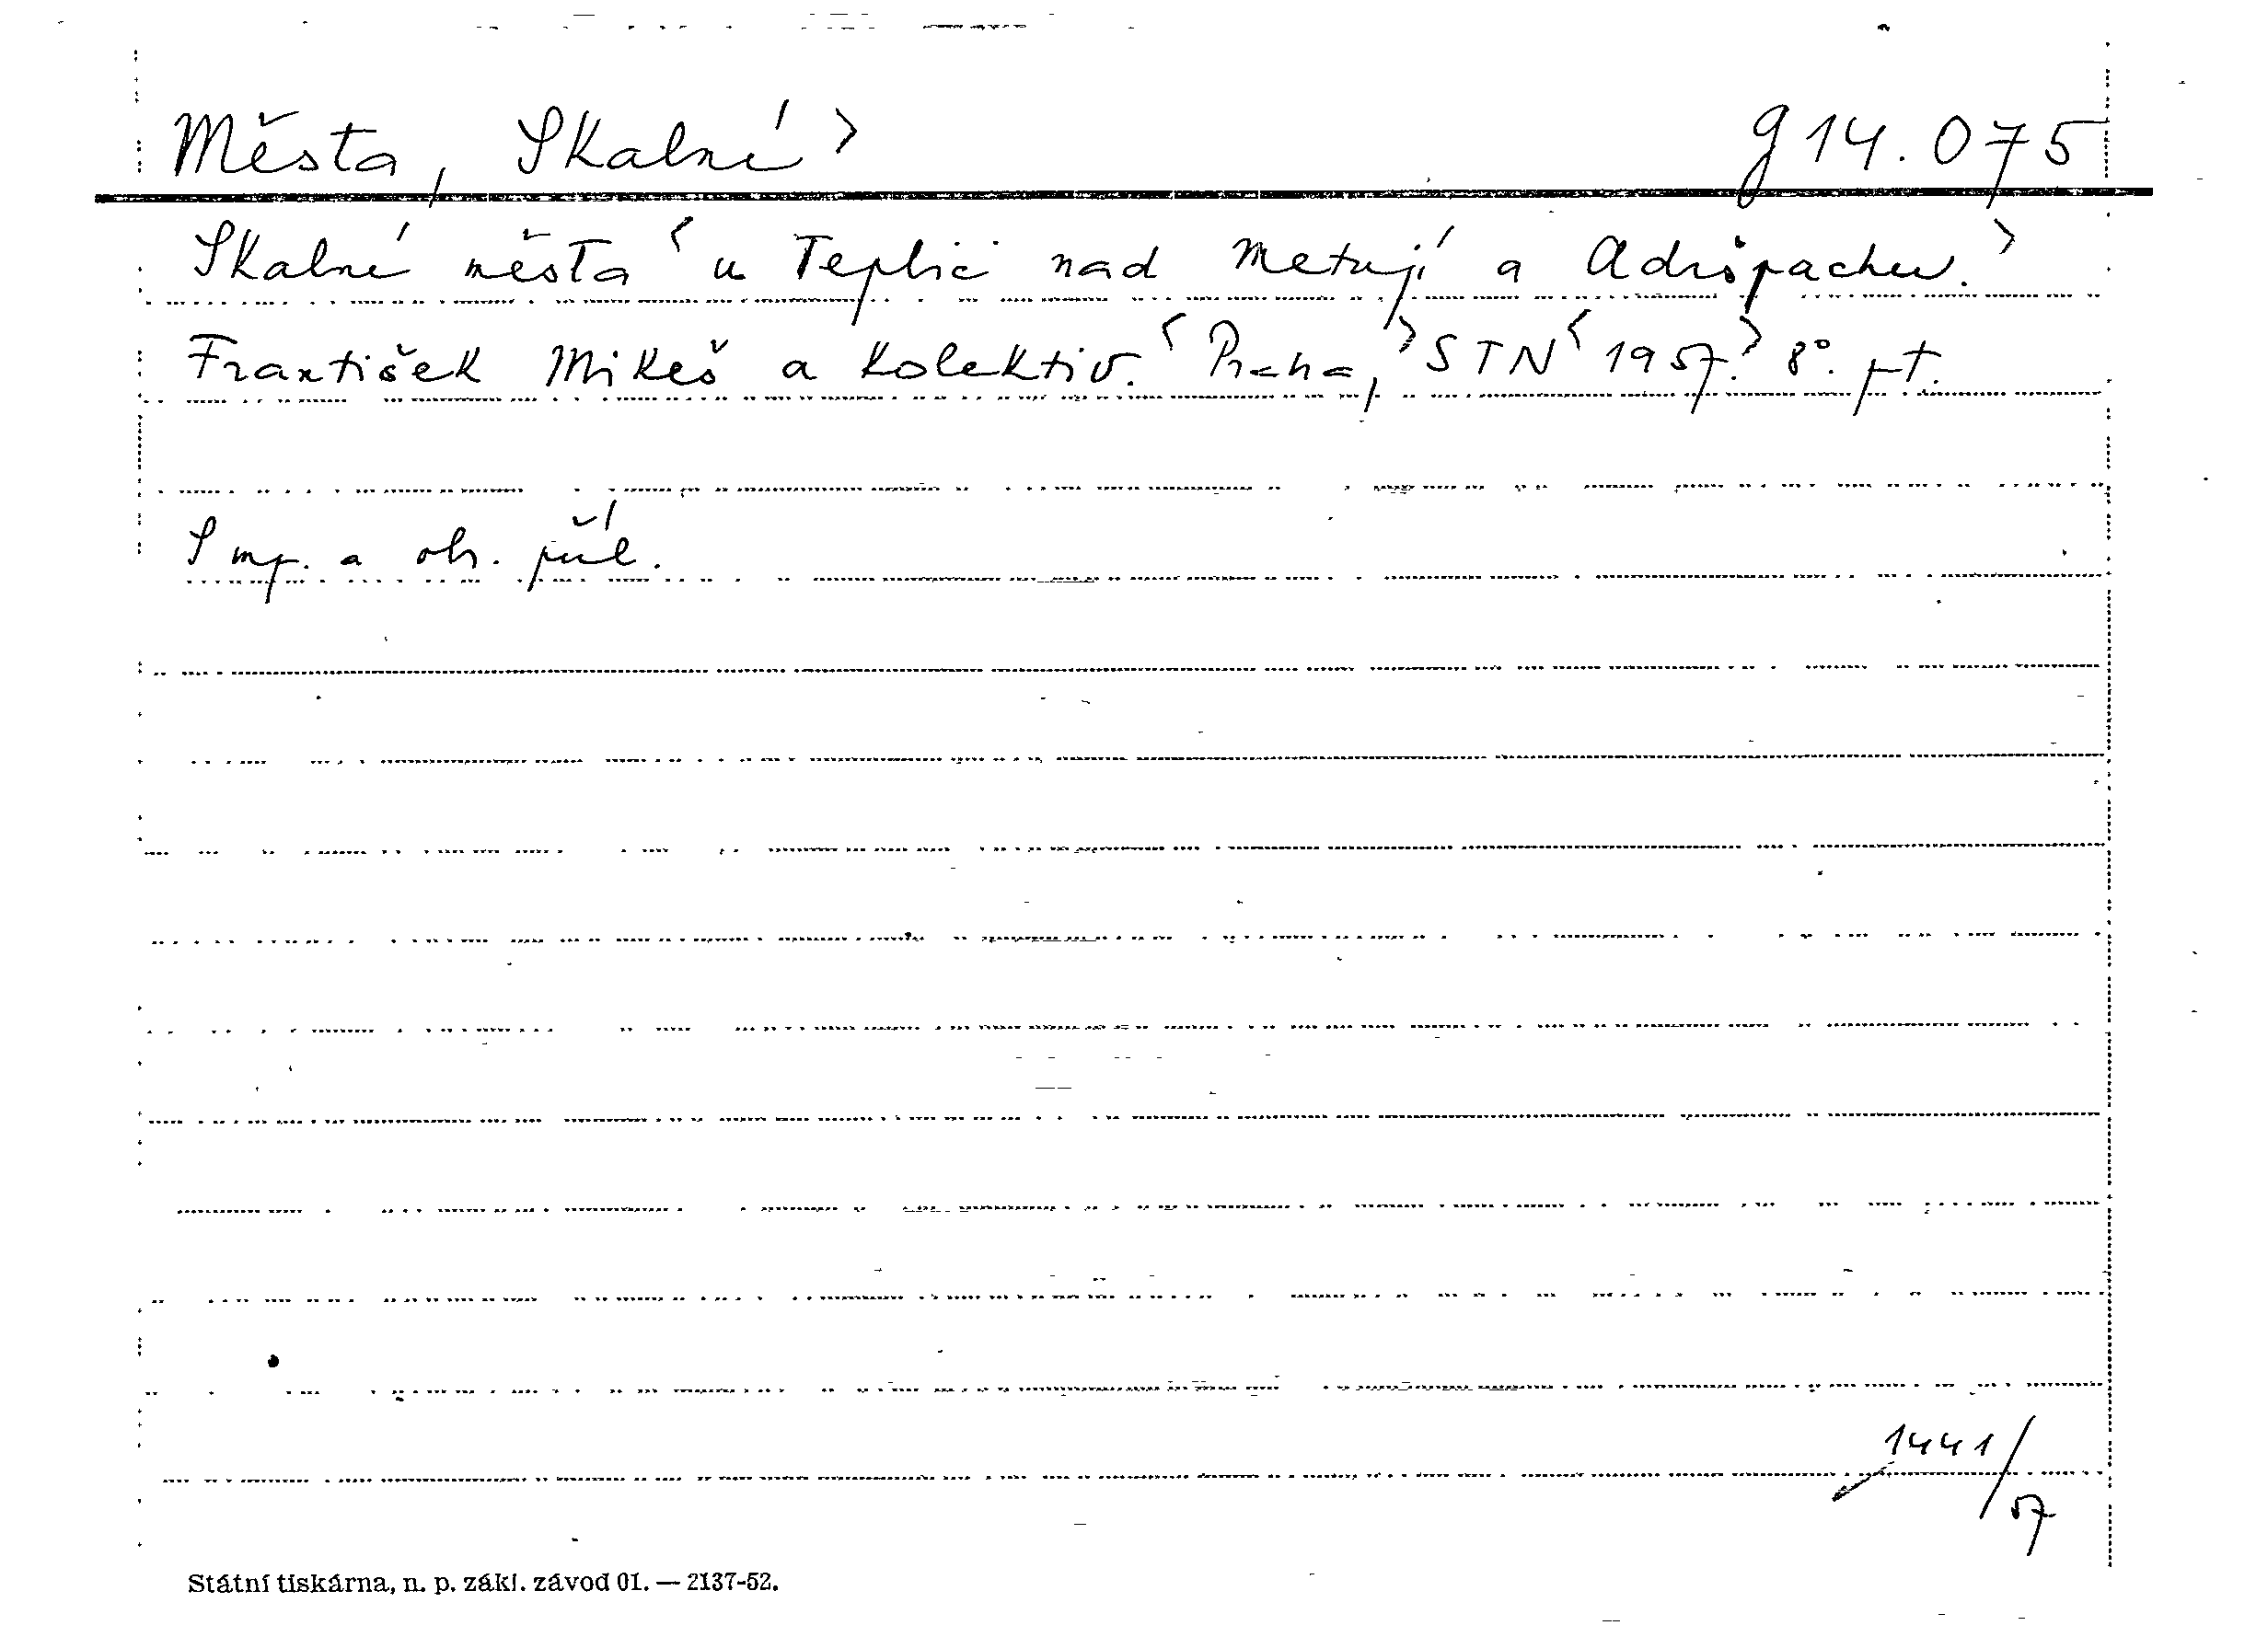 Města, Skalní > g 14.075
Skalní města < u Teplic nad Metují a Adršpachu. >
František Mikeš a kolektiv. < Praha, > STN < 1957. > 8°. pt.
S mp. a obr. příl.
1441/57
Státní tiskárna, n. p. zákl. závod 01. — 2137-52.